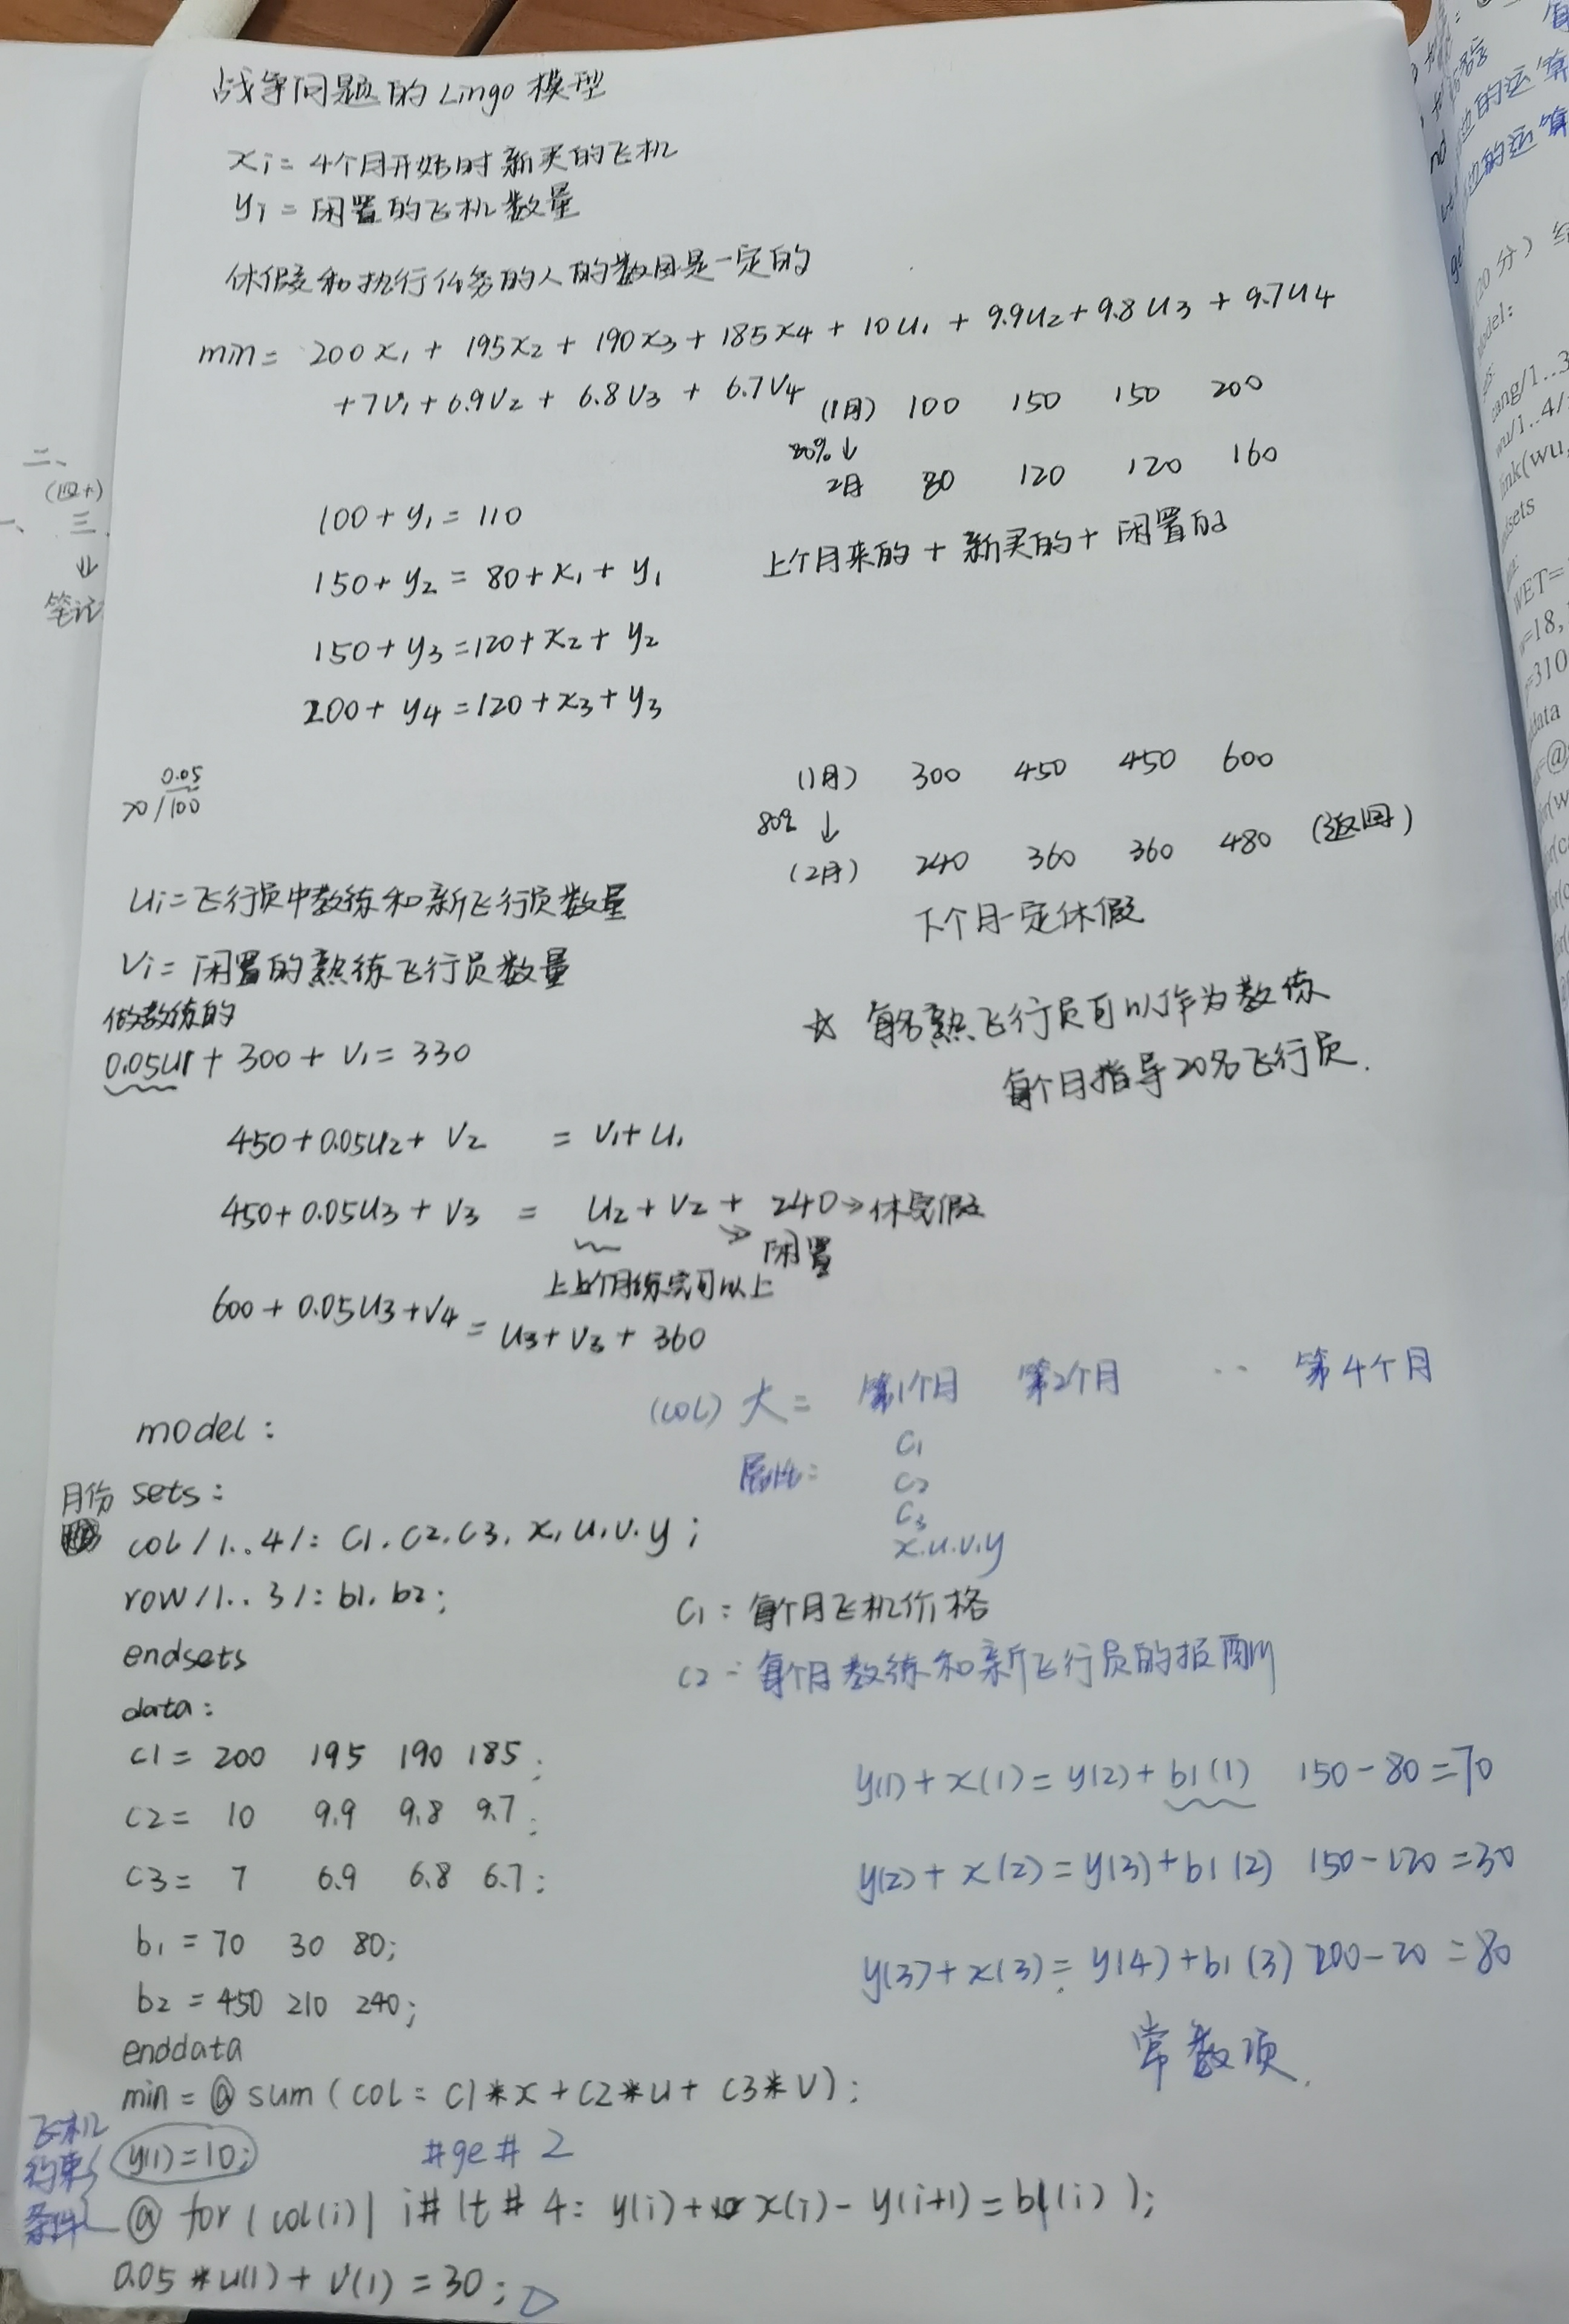 战争问题的Lingo模型
xi = 4个月开始时新买的飞机
yi = 闲置的飞机数量
休假和执行任务的人的数目是一定的
min = 200x1 + 195x2 + 190x3 + 185x4 + 10u1 + 9.9u2 + 9.8u3 + 9.7u4
+7v1 + 6.9v2 + 6.8v3 + 6.7v4
(1月) 100 150 150 200
80% ↓
2月 80 120 120 160
100 + y1 = 110
上个月来的 + 新买的 + 闲置的
150 + y2 = 80 + x1 + y1
150 + y3 = 120 + x2 + y2
200 + y4 = 120 + x3 + y3
二、
(四+)
三
↓
笔记
0.05
20/100
(1月) 300 450 450 600
80% ↓
(2月) 240 360 360 480 (返回)
下个月一定休假
ui = 飞行员中教练和新飞行员数量
vi = 闲置的熟练飞行员数量
做教练的
0.05u1 + 300 + v1 = 330
☆ 每名熟飞行员可以作为教练
每个月指导20名飞行员.
450 + 0.05u2 + v2 = v1 + u1
450 + 0.05u3 + v3 = u2 + v2 + 240 → 休完假
→ 闲置
上个月练完可以上
600 + 0.05u3 + v4 = u3 + v3 + 360
(col) 大 = 第1个月 第2个月 ·· 第4个月
属性:
c1
c2
c3
x.u.v.y
model:
月份 sets:
col/1..4/: c1, c2, c3, x, u, v, y;
row/1..3/: b1, b2;
endsets
c1: 每个月飞机价格
c2: 每个月教练和新飞行员的报酬
data:
c1 = 200 195 190 185;
c2 = 10 9.9 9.8 9.7;
c3 = 7 6.9 6.8 6.7;
b1 = 70 30 80;
b2 = 450 210 240;
enddata
y(1) + x(1) = y(2) + b1(1) 150-80=70
y(2) + x(2) = y(3) + b1(2) 150-120=30
y(3) + x(3) = y(4) + b1(3) 200-20=80
常数项.
min = @sum(col: c1*x + c2*u + c3*v);
飞机
约束
条件
y(1)=10;
#ge# 2
@for(col(i)| i#lt#4: y(i) + x(i) - y(i+1) = b1(i));
0.05*u(1) + v(1) = 30;